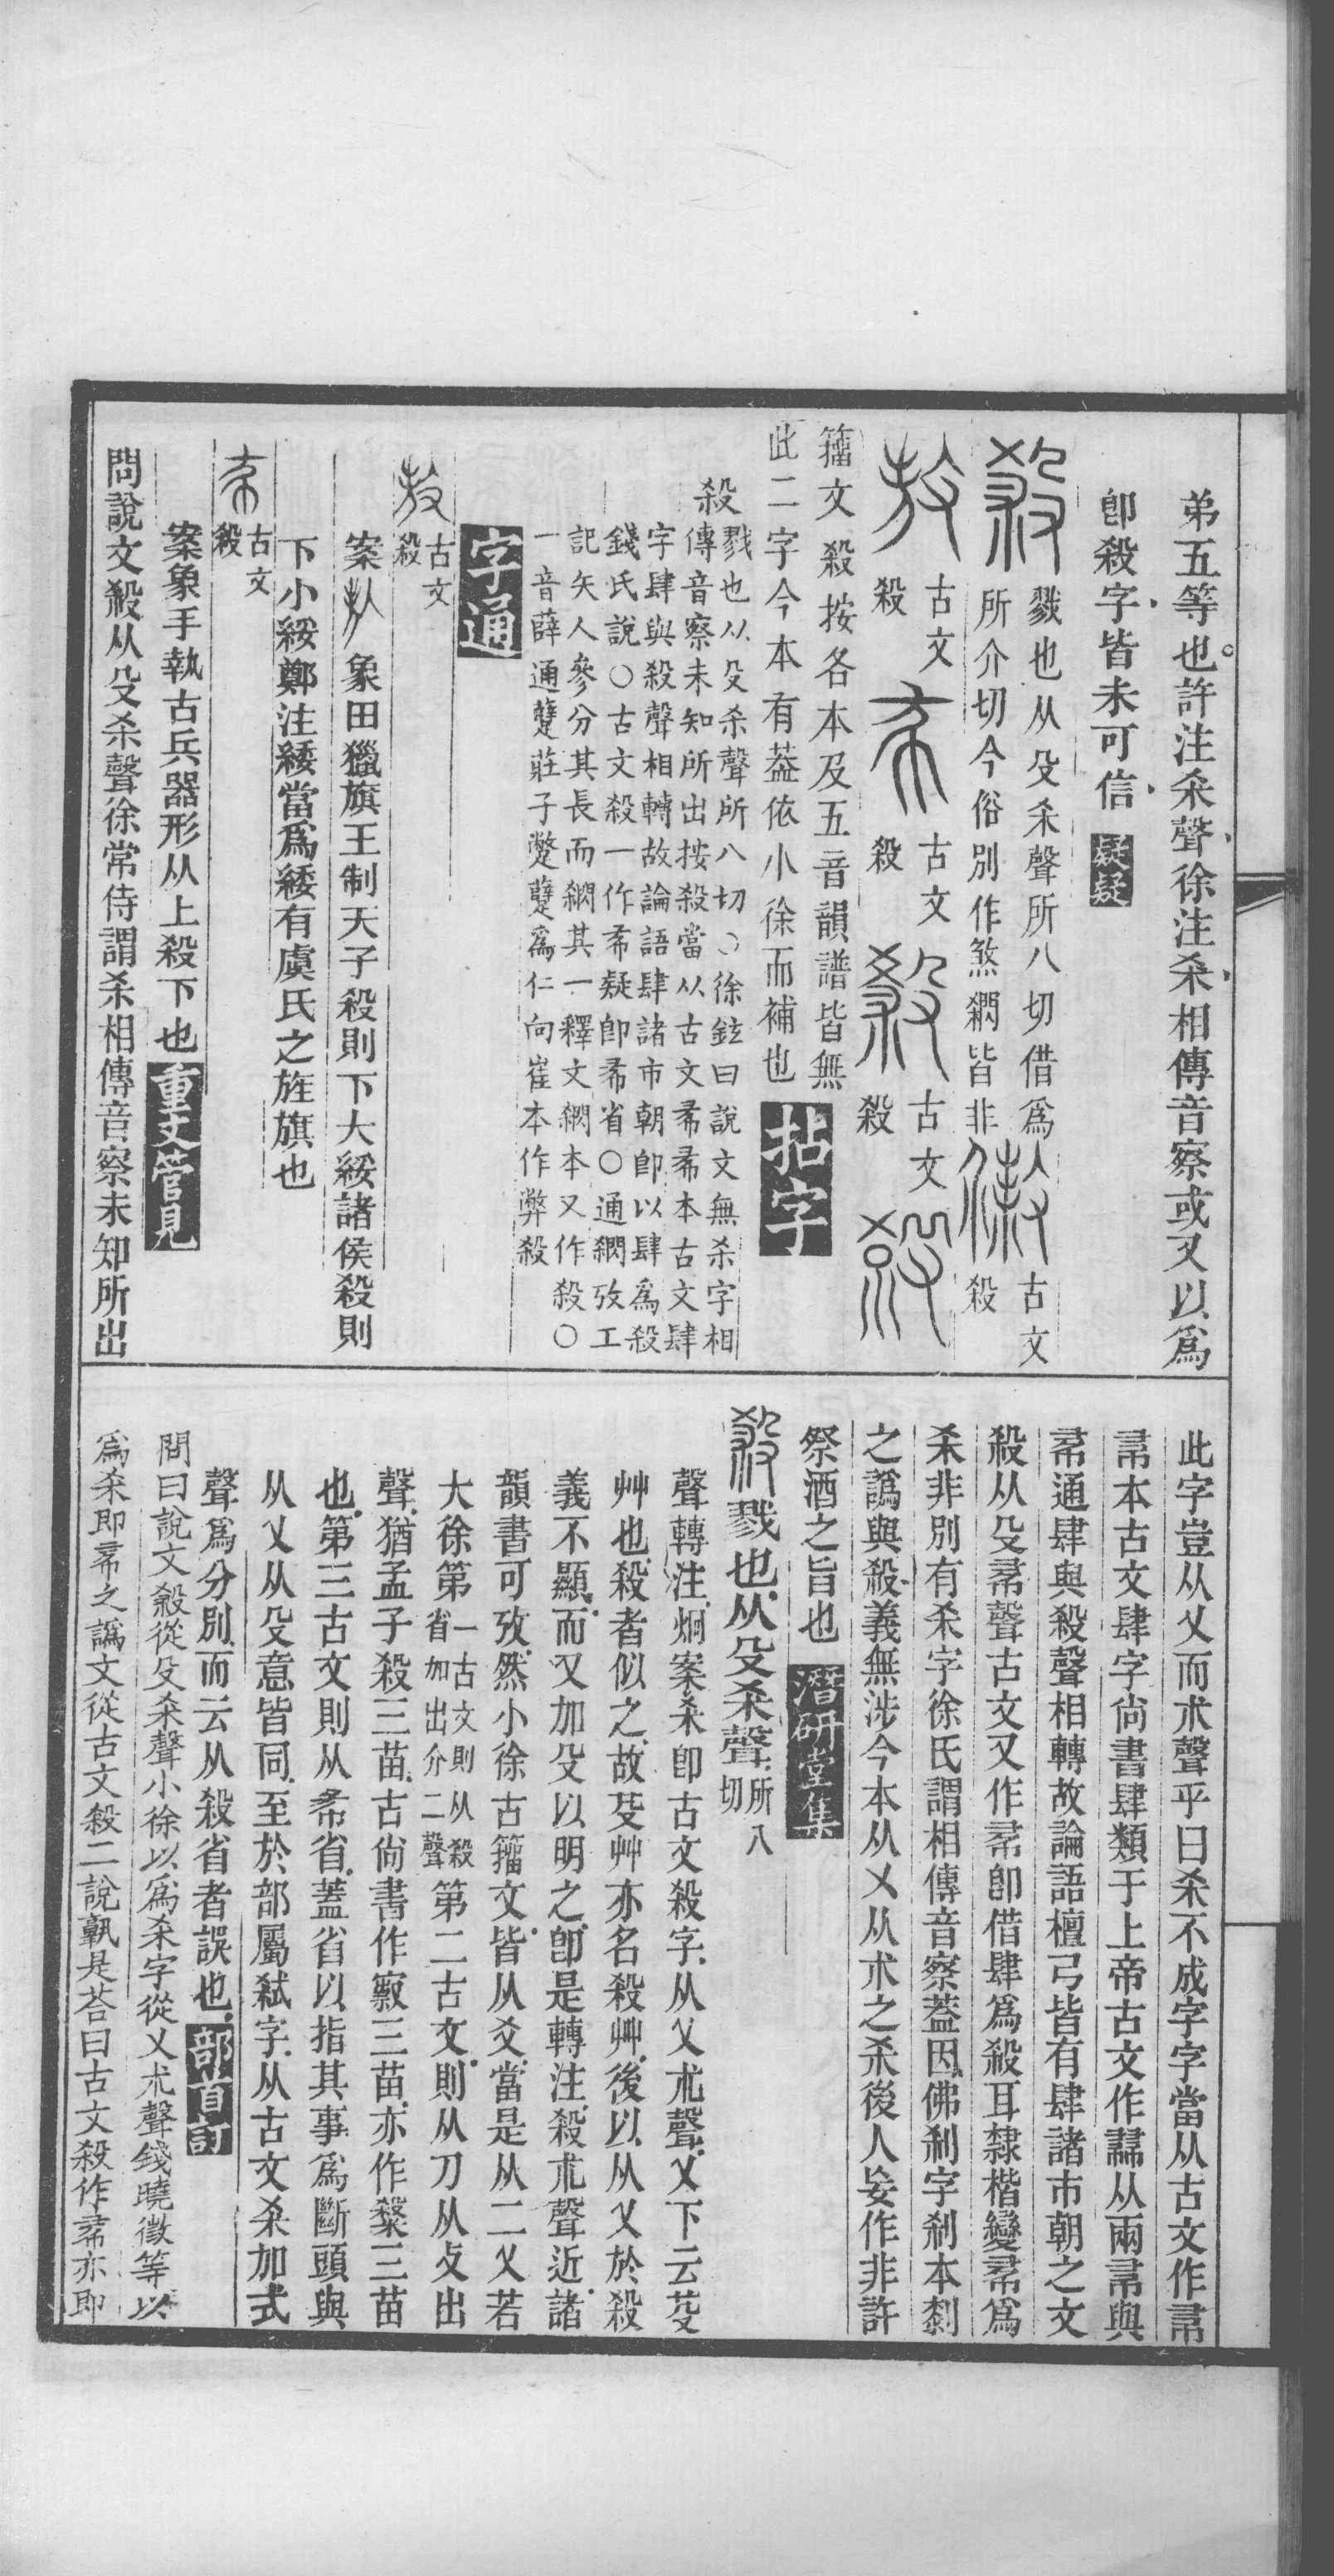 弟五等也許注杀聲徐注杀相傳音察或又以爲
卽殺字皆未可信 疑疑
戮也从殳杀聲所八切借爲
所介切今俗別作煞 皆非
古文
殺
古文
殺
古文
殺
古文
殺
籀文殺按各本及五音韻譜皆無
此二字今本有葢依小徐而補也 拈字
殺
戮也从殳杀聲所八切○徐鉉曰說文無杀字相
傳音察未知所出按殺當从古文𢁥𢁥本古文肆
字肆與殺聲相轉故論語肆諸市朝卽以肆爲殺
錢氏說○古文殺一作 疑卽𢁥省○通 攷工
記矢人參分其長而 其一釋文 本又作殺○
一音薛通躠莊子蹩躠爲仁向崔本作弊殺
字通
古文
殺
案 象田獵旗王制天子殺則下大綏諸侯殺則
下小綏鄭注綏當爲緌有虞氏之旌旗也
古文
殺
案象手執古兵器形从上殺下也 重文管見
問說文殺从殳杀聲徐常侍謂杀相傳音察未知所出
此字豈从乂而朮聲乎曰杀不成字字當从古文作𢁥
𢁥本古文肆字尙書肆類于上帝古文作 从兩𢁥與
𢁥通肆與殺聲相轉故論語檀弓皆有肆諸市朝之文
殺从殳𢁥聲古文又作𢁥卽借肆爲殺耳隸楷變𢁥爲
杀非別有杀字徐氏謂相傳音察葢因佛刹字刹本剎
之譌與殺義無涉今本从乂从朮之杀後人妄作非許
祭酒之旨也 潛研堂集
戮也从殳杀聲所八切
聲轉注炯案杀卽古文殺字从乂朮聲乂下云芟
艸也殺者似之故芟艸亦名殺艸後以从乂於殺
義不顯而又加殳以明之卽是轉注殺朮聲近諸
韻書可攷然小徐古籀文皆从爻當是从二乂若
大徐第一古文則从殺省加出介二聲第二古文則从刀从攴出
聲猶孟子殺三苗古尙書作㝮三苗亦作 三苗
也第三古文則从 省葢省以指其事爲斷頭與
从乂从殳意皆同至於部屬弑字从古文杀加式
聲爲分別而云从殺省者誤也 部首訂
問曰說文殺從殳杀聲小徐以爲杀字從乂朮聲錢曉徵等以
爲杀卽𢁥之譌文從古文殺二說孰是荅曰古文殺作𢁥亦卽